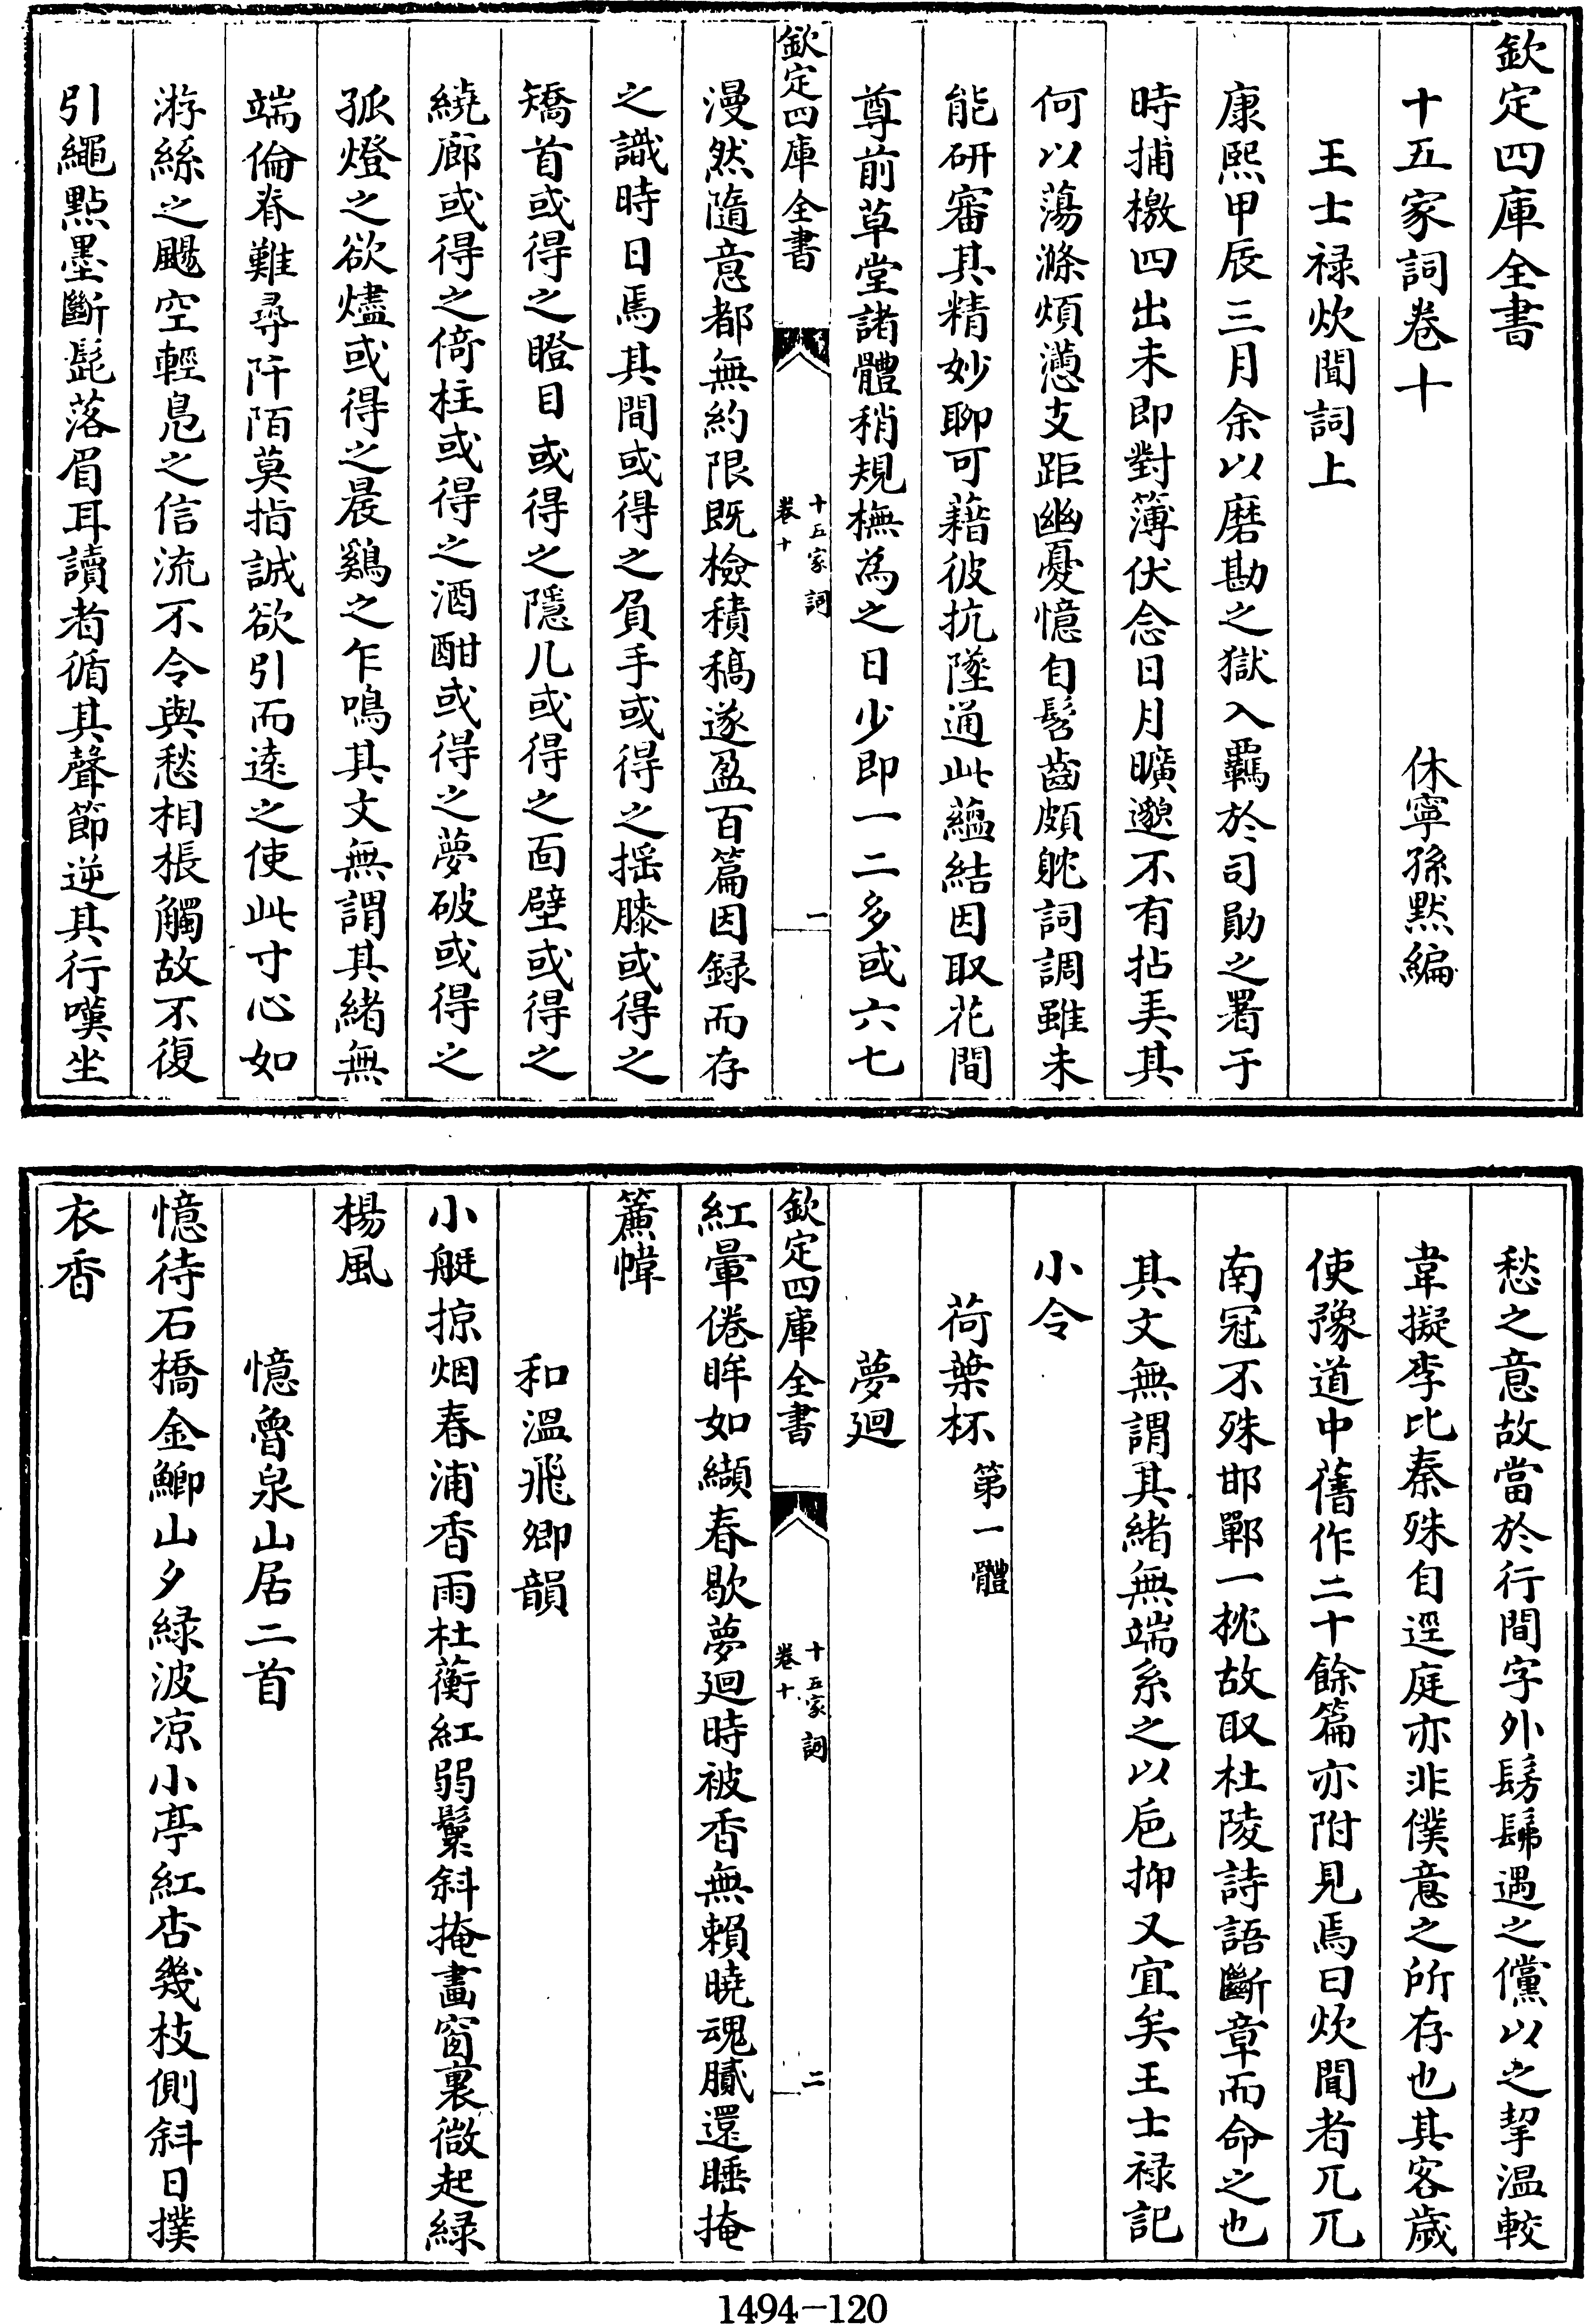 欽定四庫全書
十五家詞卷十
休寧孫默編
王士禄炊聞詞上
康熙甲辰三月余以磨勘之獄入羈於司勛之署于
時捕檄四出未即對簿伏念日月曠邈不有拈弄其
何以蕩滌煩懣支距幽憂憶自髫齒頗躭詞調雖未
能研審其精妙聊可藉彼抗墜通此蘊結因取花間
尊前草堂諸體稍規橅為之日少即一二多或六七
欽定四庫全書
十五家詞
卷十
一
漫然隨意都無約限既檢積稿遂盈百篇因録而存
之識時日焉其間或得之負手或得之揺膝或得之
矯首或得之瞪目或得之隱几或得之面壁或得之
繞廊或得之倚柱或得之酒酣或得之夢破或得之
孤燈之欲燼或得之晨鷄之乍鳴其文無謂其緒無
端倫脊難尋阡陌莫指誠欲引而遠之使此寸心如
游絲之颺空輕鳧之信流不令與愁相棖觸故不復
引繩黠墨斷髭落眉耳讀者循其聲節逆其行嘆坐
愁之意故當於行間字外髣髴遇之儻以之挈温較
韋擬李比秦殊自逕庭亦非僕意之所存也其客歲
使豫道中舊作二十餘篇亦附見焉曰炊聞者兀兀
南冠不殊邯鄲一枕故取杜陵詩語斷章而命之也
其文無謂其緒無端系之以巵抑又宜矣王士禄記
小令
荷葉杯 第一體
夢廻
欽定四庫全書
十五家詞
卷十
二
紅暈倦眸如纈春歇夢廻時被香無賴曉魂膩還睡掩
簾幃
和溫飛卿韻
小艇掠烟春浦香雨杜蘅紅弱鬟斜掩畫窗裏微起緑
楊風
憶魯泉山居二首
憶待石橋金鯽山夕緑波凉小亭紅杏幾枝側斜日撲
衣香
1494-120